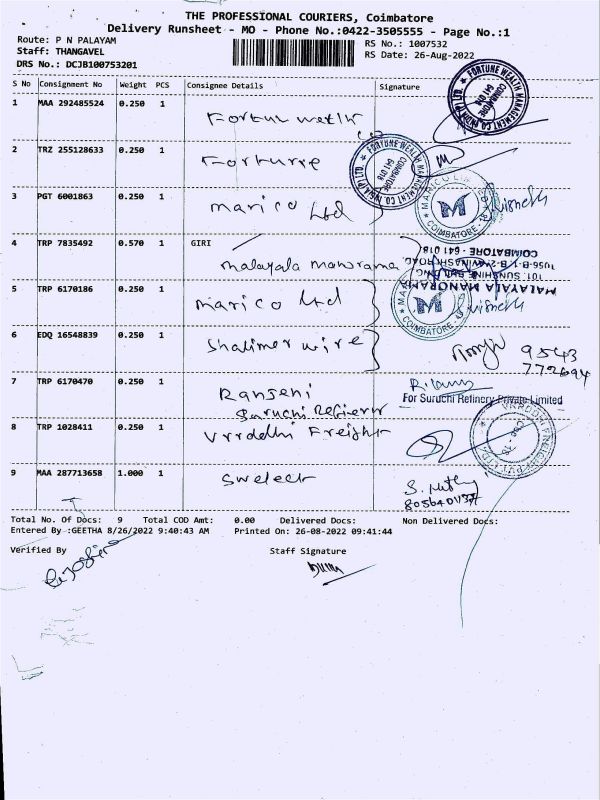 THE PROFESSIONAL COURIERS, Coimbatore
Delivery Runsheet - MO - Phone No.:0422-3505555 - Page No.:1
Route: P N PALAYAM
RS No.: 1007532
Staff: THANGAVEL
RS Date: 26-Aug-2022
DRS No.: DCJB100753201
S No Consignment No Weight PCS Consignee Details Signature
1 MAA 292485524 0.250 1
FORTUNE WEALTH MANAGEMENT CO. INDIA P LTD. COIMBATORE 641 018
2 TRZ 255128633 0.250 1 Fortune
FORTUNE WEALTH MANAGEMENT CO. INDIA P LTD. COIMBATORE 641 018
3 PGT 6001863 0.250 1 marico Ltd
MARICO LIMITED COIMBATORE M
4 TRP 7835492 0.570 1 GIRI
malayala manorama
MALAYALA MANORAMA
101, SUNSHINE
COIMBATORE - 641 018
5 TRP 6170186 0.250 1 marico Ltd
COIMBATORE M
6 EDQ 16548839 0.250 1 Shalimer wire
9543
772694
7 TRP 6170470 0.250 1
Suruchi
For Suruchi Refinery Private Limited
8 TRP 1028411 0.250 1 Vrrddhi Freight
9 MAA 287713658 1.000 1 Swelect
Total No. Of Docs: 9 Total COD Amt: 0.00 Delivered Docs: Non Delivered Docs:
Entered By :GEETHA 8/26/2022 9:40:43 AM Printed On: 26-08-2022 09:41:44
Verified By Staff Signature